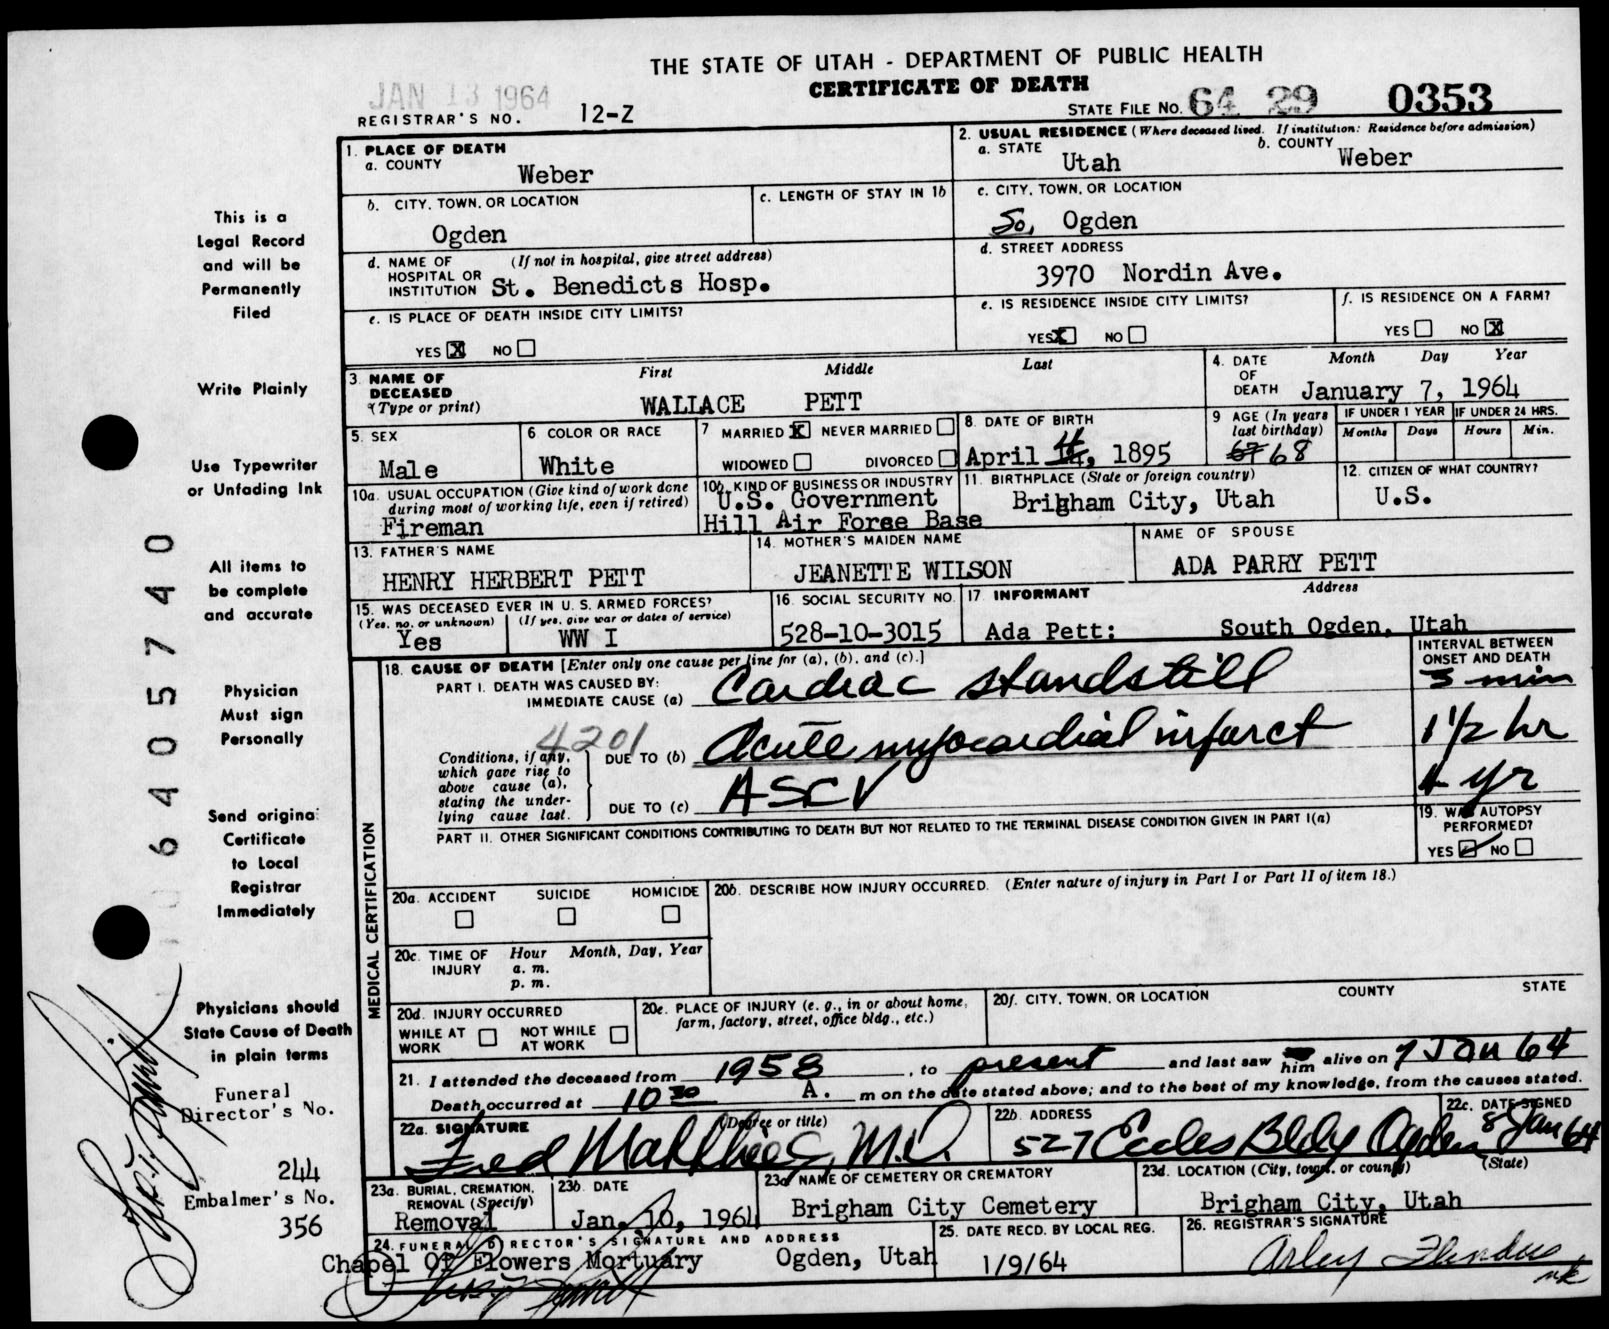 THE STATE OF UTAH - DEPARTMENT OF PUBLIC HEALTH
CERTIFICATE OF DEATH
JAN 13 1964
REGISTRAR'S NO. 12-Z
STATE FILE NO. 64 29 0353
1. PLACE OF DEATH
a. COUNTY
Weber
2. USUAL RESIDENCE (Where deceased lived. If institution: Residence before admission)
a. STATE
Utah
b. COUNTY
Weber
b. CITY, TOWN, OR LOCATION
Ogden
c. LENGTH OF STAY IN 1b
c. CITY, TOWN, OR LOCATION
So. Ogden
d. NAME OF HOSPITAL OR INSTITUTION (If not in hospital, give street address)
St. Benedicts Hosp.
d. STREET ADDRESS
3970 Nordin Ave.
e. IS PLACE OF DEATH INSIDE CITY LIMITS?
YES X NO
e. IS RESIDENCE INSIDE CITY LIMITS?
YES X NO
f. IS RESIDENCE ON A FARM?
YES NO X
3. NAME OF DECEASED (Type or print)
First Middle Last
WALLACE PETT
4. DATE OF DEATH
Month Day Year
January 7, 1964
5. SEX
Male
6 COLOR OR RACE
White
7 MARRIED X NEVER MARRIED
WIDOWED DIVORCED
8. DATE OF BIRTH
April 14, 4 1895
9 AGE (In years last birthday)
67 68
IF UNDER 1 YEAR
Months Days
IF UNDER 24 HRS.
Hours Min.
10a. USUAL OCCUPATION (Give kind of work done during most of working life, even if retired)
Fireman
10b. KIND OF BUSINESS OR INDUSTRY
U.S. Government
Hill Air Force Base
11. BIRTHPLACE (State or foreign country)
Brigham City, Utah
12. CITIZEN OF WHAT COUNTRY?
U.S.
13. FATHER'S NAME
HENRY HERBERT PETT
14. MOTHER'S MAIDEN NAME
JEANETTE WILSON
NAME OF SPOUSE
ADA PARRY PETT
15. WAS DECEASED EVER IN U. S. ARMED FORCES?
(Yes, no, or unknown) (If yes, give war or dates of service)
Yes WW I
16. SOCIAL SECURITY NO.
528-10-3015
17. INFORMANT Address
Ada Pett: South Ogden, Utah
18. CAUSE OF DEATH [Enter only one cause per line for (a), (b), and (c).]
INTERVAL BETWEEN ONSET AND DEATH
PART I. DEATH WAS CAUSED BY:
IMMEDIATE CAUSE (a) Cardiac standstill 5 min
4201
Conditions, if any, which gave rise to above cause (a), stating the underlying cause last.
DUE TO (b) Acute myocardial infarct 1 1/2 hr
DUE TO (c) ASCV yr
PART II. OTHER SIGNIFICANT CONDITIONS CONTRIBUTING TO DEATH BUT NOT RELATED TO THE TERMINAL DISEASE CONDITION GIVEN IN PART I(a)
19. WAS AUTOPSY PERFORMED?
YES NO
MEDICAL CERTIFICATION
20a. ACCIDENT SUICIDE HOMICIDE
20b. DESCRIBE HOW INJURY OCCURRED. (Enter nature of injury in Part I or Part II of item 18.)
20c. TIME OF INJURY Hour Month, Day, Year
a. m.
p. m.
20d. INJURY OCCURRED
WHILE AT WORK NOT WHILE AT WORK
20e. PLACE OF INJURY (e. g., in or about home, farm, factory, street, office bldg., etc.)
20f. CITY, TOWN, OR LOCATION COUNTY STATE
21. I attended the deceased from 1958, to present and last saw him alive on 7 Jan 64
Death occurred at 10 30 A. m on the date stated above; and to the best of my knowledge, from the causes stated.
22a. SIGNATURE (Degree or title)
Fred Matthies, M.D.
22b. ADDRESS
527 Eccles Bldg Ogden
22c. DATE SIGNED
8 Jan 64
23a. BURIAL, CREMATION, REMOVAL (Specify)
Removal
23b. DATE
Jan. 10, 1964
23c NAME OF CEMETERY OR CREMATORY
Brigham City Cemetery
23d. LOCATION (City, town, or county) (State)
Brigham City, Utah
24. FUNERAL DIRECTOR'S SIGNATURE AND ADDRESS
Chapel Of Flowers Mortuary Ogden, Utah
25. DATE RECD. BY LOCAL REG.
1/9/64
26. REGISTRAR'S SIGNATURE
This is a
Legal Record
and will be
Permanently
Filed
Write Plainly
Use Typewriter
or Unfading Ink
All items to
be complete
and accurate
Physician
Must sign
Personally
Send original
Certificate
to Local
Registrar
Immediately
Physicians should
State Cause of Death
in plain terms
Funeral
Director's No.
244
Embalmer's No.
356
64057 40